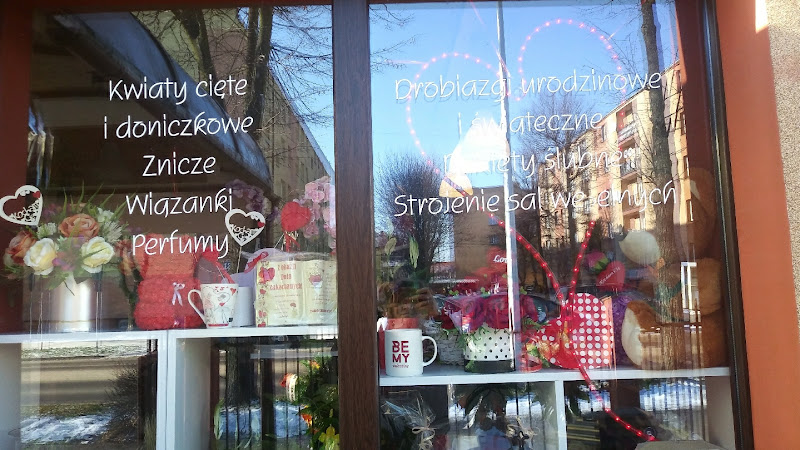 Kwiaty cięte
i doniczkowe
Znicze
Wiązanki
Perfumy
Drobiazgi urodzinowe
i świąteczne
ślubne
Strojenie sal weselnych
BE
MY